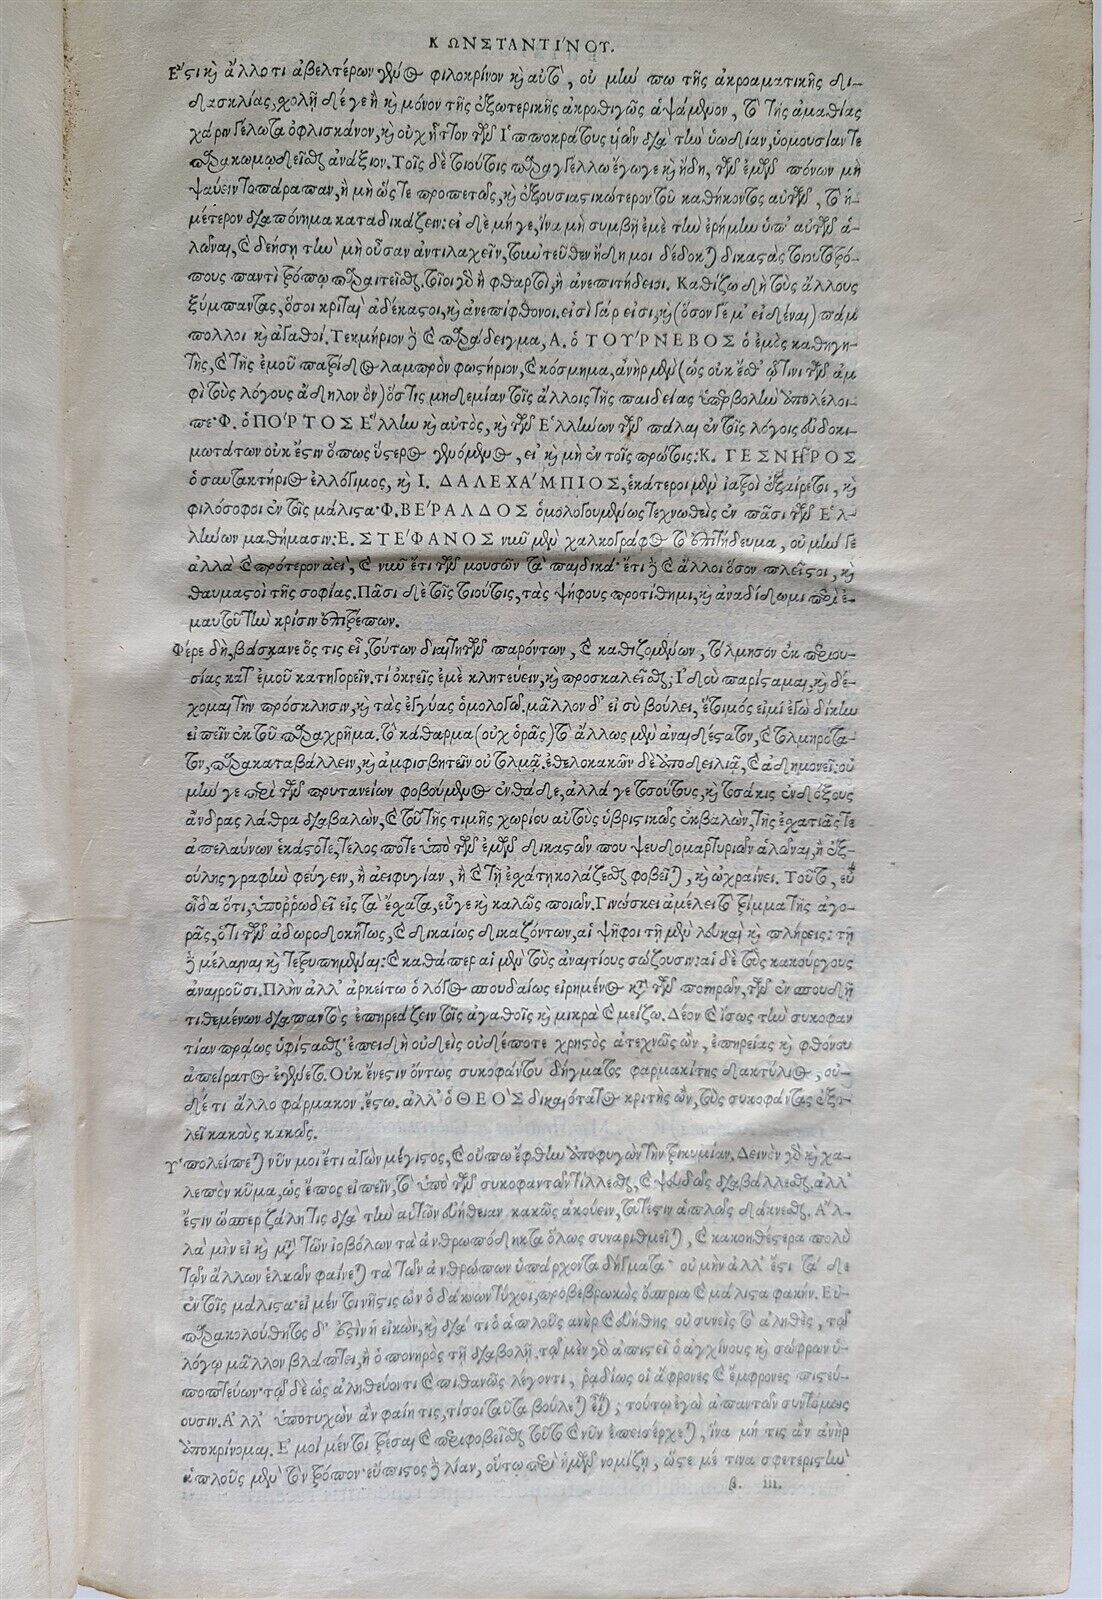 ΚΩΝΣΤΑΝΤΙΝΟΥ.
Ἔστι καὶ ἄλλο τι ἀβελτέρων γένος φιλοκρίνον καὶ αὐτὸ, οὐ μὴν πω τῆς ἀκροαματικῆς δι-
δασκαλίας, χολῇ λέγε ἢ καὶ μόνον τῆς ἐξωτερικῆς ἀκροθιγῶς ἁψάμενον, τὸ τῆς ἀμαθίας
χάριν γέλωτα ὀφλισκάνον, καὶ οὐχ ἧττον τῶν Ἱπποκράτους ὑῶν διὰ τὴν
παρακωμῳδεῖσθαι ἀνάξιον. Τοῖς δὲ τοιούτοις παραγγέλλω ἔγωγε καὶ ἤδη, τῶν ἐμῶν πόνων μὴ
ψαύειν τοπάραπαν, ἢ μὴ ὥστε προπετῶς, καὶ ἐξουσιαστικώτερον τοῦ καθήκοντος αὐτῶν, τὸ ἡ-
μέτερον διαπόνημα καταδικάζειν: εἰ δὲ μή γε, ἵνα μὴ συμβῇ ἐμὲ τὴν ἐρήμην ὑπ' αὐτῶν ἁ-
λῶναι, καὶ δεήσῃ τὴν μὴ οὖσαν ἀντιλαχεῖν, τηνῦν τεῦθεν ἤδη μοι δέδοκται δικαστὰς τοιουτοτρό-
πους παντὶ τρόπῳ παραιτεῖσθαι. τῖοι γὰρ ἢ φθαρτοὶ, ἢ ἀνεπιτήδειοι. Καθίζω δὴ τοὺς ἄλλους
ξύμπαντας, ὅσοι κριταὶ ἀδέκαστοι, καὶ ἀνεπίφθονοι. εἰσὶ γάρ εἰσι, καὶ (ὅσον γέ μ' εἰδέναι) πάμ
πολλοι καὶ ἀγαθοί. Τεκμήριον δὲ καὶ παράδειγμα, Α. ὁ ΤΟΥΡΝΕΒΟΣ ὁ ἐμὸς καθηγη-
τὴς, καὶ τῆς ἐμοῦ πατρίδος λαμπρὸν φωστήριον, καὶ κόσμημα, ἀνὴρ μὲν (ὡς οὐκ ἔσθ' ᾧτινι τῶν ἀμ
φὶ τοὺς λόγους ἄδηλον ὂν) ὅστις μηδεμίαν τοῖς ἄλλοις τῆς παιδείας ὑπερβολὴν ὑπολέλοι-
πε· Φ. ὁ ΠΟΡΤΟΣ Ἕλλην καὶ αὐτὸς, καὶ τῶν Ἑλλήνων τῶν πάλαι ἐν τοῖς λόγοις εὐδοκι-
μωτάτων οὐκ ἔστιν ὅπως ὕστερος γενόμενος, εἰ καὶ μὴ ἐν τοῖς πρώτοις: Κ. ΓΕΣΝΗΡΟΣ
ὁ ἐλλόγιμος, καὶ Ι. ΔΑΛΕΧΑΜΠΙΟΣ, ἑκάτεροι μὲν ἰατροὶ ἐξαίρετοι, καὶ
φιλόσοφοι ἐν τοῖς μάλιστα· Φ. ΒΕΡΑΛΔΟΣ ὁμολογουμένως τεχνωθεὶς ἐν πᾶσι τῶν Ἑλ-
λήνων μαθήμασιν: Ε. ΣΤΕΦΑΝΟΣ νῦν μὲν χαλκογράφος τὸ ἐπιτήδευμα, οὐ μήν γε
ἀλλὰ καὶ πρότερον ἀεὶ, καὶ νῦν ἔτι τῶν μουσῶν τὰ παιδικά· ἔτι δὲ καὶ ἄλλοι ὅσον πλεῖστοι, καὶ
θαυμαστοὶ τῆς σοφίας. Πᾶσι δὲ τοῖς τοιούτοις, τὰς ψήφους προτίθημι, καὶ ἀναδίδωμι περὶ ἐ-
μαυτοῦ τὴν κρίσιν ἐπιτρέπων.
Φέρε δὴ, βάσκανε ὅς τις εἶ, τούτων διαιτητῶν παρόντων, καὶ καθιζομένων, τόλμησον ἐκ περιου-
σίας κατ' ἐμοῦ κατηγορεῖν. τί ὀκνεῖς ἐμὲ κλητεύειν, καὶ προσκαλεῖσθαι; Ἰδοὺ παρίσταμαι, καὶ δέ-
χομαι τὴν πρόσκλησιν, καὶ τὰς ἐγγύας ὁμολογῶ. μᾶλλον δ' εἰ σὺ βούλει, ἕτοιμός εἰμι ἐγὼ δίκην
εἰπεῖν ἐκ τοῦ παραχρῆμα. τὸ κάθαρμα (οὐχ ὁρᾷς) τὸ ἄλλως μὲν ἀναιδέστατον, καὶ τολμηρότα-
τον, παρακαταβάλλειν, καὶ ἀμφισβητεῖν οὐ τολμᾷ. ἐθελοκακῶν δὲ ἀποδειλιᾷ, καὶ ἀδημονεῖ: οὐ
μήν γε περὶ τῶν πρυτανείων φοβούμενος ἐνθάδε, ἀλλά γε τοσούτους, καὶ τοσάκις ἐνδόξους
ἄνδρας λάθρα διαβαλὼν, καὶ τοῦ τῆς τιμῆς χωρίου αὐτοὺς ὑβριστικῶς ἐκβαλὼν, τῆς ἐσχατιᾶς τε
ἀπελαύνων ἑκάστοτε, τέλος πότε ὑπὸ τῶν ἐμῶν δικαστῶν που ψευδομαρτυριῶν ἁλῶναι, ἢ ἐξ-
ούλης γραφὴν φεύγειν, ἢ ἀειφυγίαν, ἢ καὶ τῇ ἐσχάτῃ κολάζεσθαι φοβεῖται, καὶ ὠχραίνει. Τοῦτο, εὖ
οἶδα ὅτι, ὑπορρωδεῖ εἰς τὰ ἔσχατα, εὖγε καὶ καλῶς ποιῶν. Γινώσκει ἀμέλει τὸ τρίμμα τῆς ἀγο-
ρᾶς, ὅτι τῶν ἀδωροδοκήτως, καὶ δικαίως δικαζόντων, αἱ ψῆφοι τῇ μὲν λευκαὶ καὶ πλήρεις: τῇ
δὲ μέλαιναι καὶ τετρυπημέναι: καὶ καθάπερ αἱ μὲν τοὺς ἀναιτίους σώζουσιν: αἱ δὲ τοὺς κακούργους
ἀναιροῦσι. Πλὴν ἀλλ' ἀρκείτω ὁ λόγος σπουδαίως εἰρημένος κατὰ τῶν πονηρῶν, τῶν ἐν σπουδῇ
τιθεμένων διαπαντὸς ἐπηρεάζειν τοῖς ἀγαθοῖς καὶ μικρὰ καὶ μείζω. Δέον καὶ ἴσως τὴν συκοφαν
τίαν πράως ὑφίστασθαι· ἐπειδὴ οὐδεὶς οὐδέποτε χρηστὸς ἀτεχνῶς ὢν, ἐπηρείας καὶ φθόνου
ἀπείρατος ἐγένετο. Οὐκ ἔνεστιν ὄντως συκοφάντου δήγματος φαρμακίτης δακτύλιος, οὐ-
δέ τι ἄλλο φάρμακον. ἔστω. ἀλλ' ὁ ΘΕΟΣ δικαιότατος κριτὴς ὢν, τοὺς συκοφάντας ἐξο-
λεῖ κακοὺς κακῶς.
Ὑπολείπεται νῦν μοι ἔτι ἀγὼν μέγιστος, καὶ οὔπω ἔφθην ἀποφυγὼν τὴν τρικυμίαν. Δεινὸν γὰρ καὶ χα-
λεπὸν κῦμα, ὡς ἔπος εἰπεῖν, τὸ ὑπὸ τῶν συκοφαντῶν τίλλεσθαι, καὶ ψευδῶς διαβάλλεσθαι. ἀλλ'
ἔστιν ὥσπερ ζάλη τις διὰ τὴν αὐτῶν εὐήθειαν κακῶς ἀκούειν, τοῦτ' ἔστιν ἁπλῶς δάκνεσθαι. Ἀλ-
λὰ μὴν εἰ καὶ μετὰ τῶν ἰοβόλων τὰ ἀνθρωπόδηκτα ὅλως συναριθμεῖται, καὶ κακοηθέστερα πολὺ
τῶν ἄλλων ἑλκῶν φαίνεται τὰ τῶν ἀνθρώπων ὑπάρχοντα δήγματα· οὐ μὴν ἀλλ' ἔστι τάδε
ἐν τοῖς μάλιστα· εἰ μέν τοι νῆστις ὢν ὁ δάκνων τύχοι, προβεβρωκὼς ὄσπρια καὶ μάλιστα φακήν. Εὐ-
παρακολούθητος δ' ἐστὶν ἡ εἰκὼν, καὶ διὰ τί ὁ ἁπλοῦς ἀνὴρ καὶ εὐήθης οὐ συνεὶς τὸ ἀληθὲς, τῷ
λόγῳ μᾶλλον βλάπτει, ἢ ὁ πονηρὸς τῇ διαβολῇ. τῷ μὲν γὰρ ἀπιστεῖ ὁ ἀγχίνους καὶ σώφρων ὑ-
ποπτεύων· τῷ δὲ ὡς ἀληθεύοντι καὶ πιθανῶς λέγοντι, ῥᾳδίως οἱ ἄφρονες καὶ ἔμφρονες πιστεύ-
ουσιν. Ἀλλ' ὑποτυχὼν ἂν φαίη τις, τί σοι ταῦτα βούλεται εἶναι; τούτῳ ἐγὼ ἁπάντων συντόμως
ἀποκρίνομαι. Ἐμοὶ μέν τοι τρέσαι καὶ περιφοβεῖσθαι τοῦτο καὶ νῦν ἐπεισέρχεται, ἵνα μή τις ἂν ἀνὴρ
ἁπλοῦς μὲν τὸν τρόπον· εὔπιστος δὲ λίαν, οὕτω περὶ ἡμῶν νομίζῃ, ὥστε μέ τινα σφετεριστὴν
β. iii.